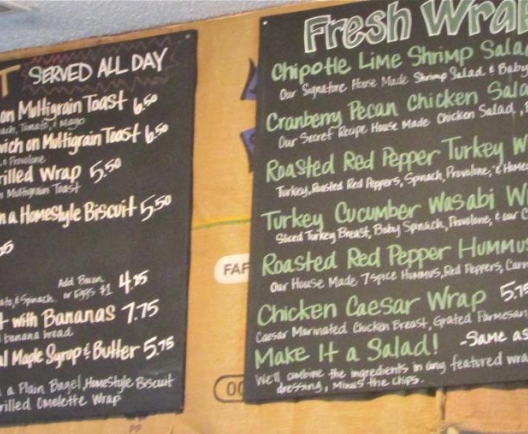 SERVED ALL DAY
on Multigrain Toast 6.50
Tomato, & Mayo
on Multigrain Toast 6.50
Provolone
Wrap 5.50
on Multigrain Toast
on a Homestyle Biscuit 5.50
Add Bacon
& Spinach. or Eggs $1 4.95
with Bananas 7.75
banana bread.
Maple Syrup & Butter 5.75
a Plain Bagel, Homestyle Biscuit
Omelette Wrap
Fresh
Chipotle Lime Shrimp
Our Signature House Made Shrimp Salad & Baby
Cranberry Pecan Chicken
Our Secret Recipe House Made Chicken Salad,
Roasted Red Pepper Turkey
Turkey, Roasted Red Peppers, Spinach, Provolone, &
Turkey Cucumber Wasabi
Sliced Turkey Breast, Baby Spinach, Provolone, & our
Roasted Red Pepper
Our House Made 7 spice Hummus, Red Peppers,
Chicken Caesar Wrap 5.75
Caesar Marinated Chicken Breast, Grated Parmesan
Make It a Salad! -Same as
We'll combine the ingredients in any featured
dressing, Minus the chips.